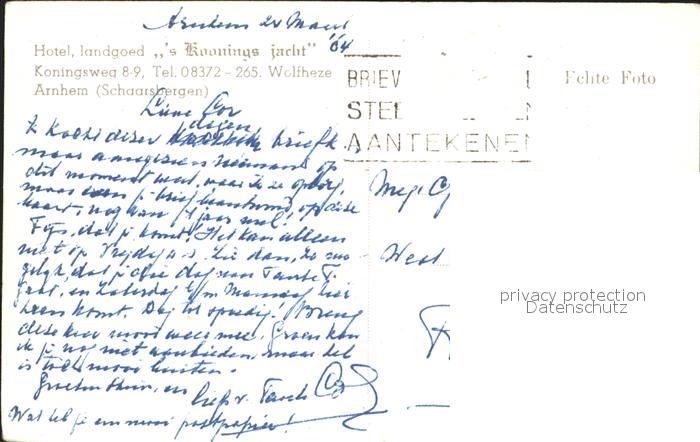 Arnhem 24 Maart '64
Hotel, landgoed „'s Koonings jacht"
Koningsweg 8-9, Tel. 08372 - 265. Wolfheze
Arnhem (Schaarsbergen)
Echte Foto
BRIEV
STEL
AANTEKENEN
Lieve Cor
Ik kocht dezer dagen briefk.
maar aangezien niemand op
dit moment weet, waar ik ze opborg,
maar even je brief beantwoord, op deze
kaart, nog van 't jaar nul!
Fijn, dat je komt! Het kan alleen
niet op Vrijdag a.s. Zie dan, zo mo-
gelijk, dat je die dag naar Tante T.
gaat, en Zaterdag t/m Maandag hier
heen komt. Dag tot spoedig! Breng
deze keer mooi weer mee. Groen kan
ik je nog niet aanbieden, maar het
is toch mooi buiten.
Groeten thuis, en
liefs v. Tante
Wat heb je een mooi postpapier!
Mej. C
West
privacy protection
Datenschutz